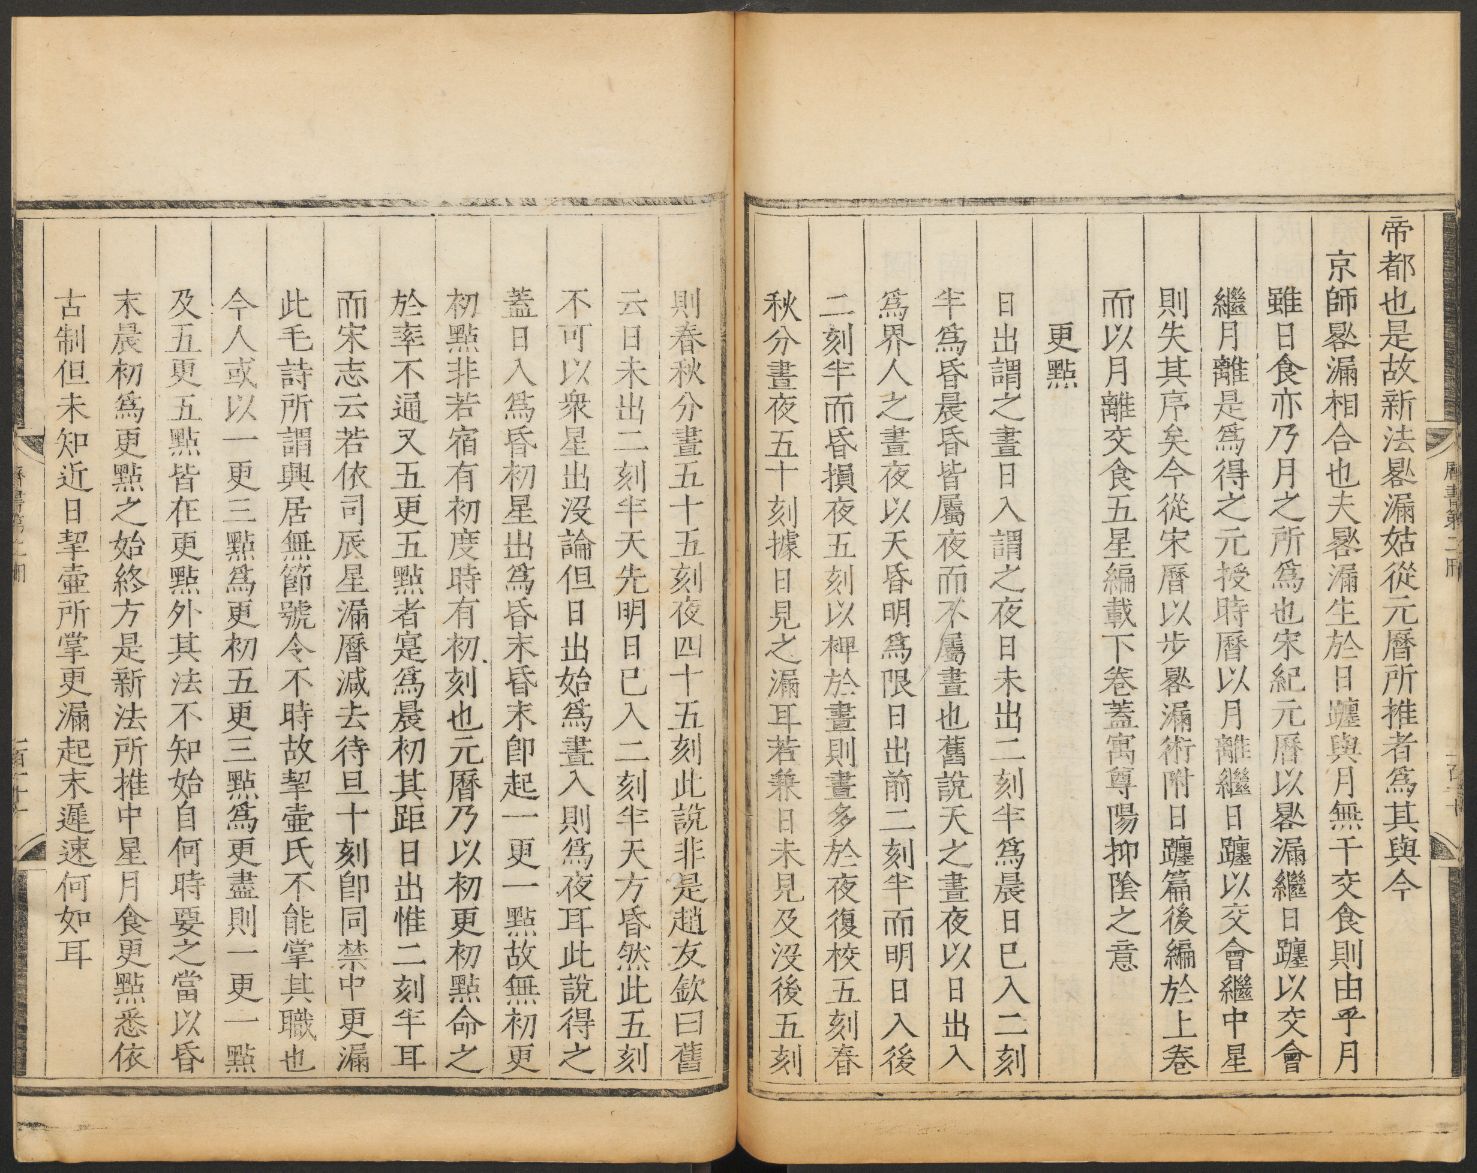 帝都也是故新法晷漏姑從元曆所推者爲其與今
京師晷漏相合也夫晷漏生於日躔與月無干交食則由乎月
雖日食亦乃月之所爲也宋紀元曆以晷漏繼日躔以交會
繼月離是爲得之元授時曆以月離繼日躔以交會繼中星
則失其序矣今從宋曆以步晷漏術附日躔篇後編於上卷
而以月離交食五星編載下卷蓋寓尊陽抑陰之意
更點
日出謂之晝日入謂之夜日未出二刻半爲晨日已入二刻
半爲昏晨昏皆屬夜而不屬晝也舊說天之晝夜以日出入
爲界人之晝夜以天昏明爲限日出前二刻半而明日入後
二刻半而昏損夜五刻以裨於晝則晝多於夜復校五刻春
秋分晝夜五十刻據日見之漏耳若兼日未見及沒後五刻
則春秋分晝五十五刻夜四十五刻此說非是趙友欽曰舊
云日未出二刻半天先明日已入二刻半天方昏然此五刻
不可以衆星出沒論但日出始爲晝入則爲夜耳此說得之
蓋日入爲昏初星出爲昏末昏末卽起一更一點故無初更
初點非若宿有初度時有初刻也元曆乃以初更初點命之
於率不通又五更五點者寔爲晨初其距日出惟二刻半耳
而宋志云若依司辰星漏曆減去待旦十刻卽同禁中更漏
此毛詩所謂興居無節號令不時故挈壷氏不能掌其職也
今人或以一更三點爲更初五更三點爲更盡則一更一點
及五更五點皆在更點外其法不知始自何時要之當以昏
末晨初爲更點之始終方是新法所推中星月食更點悉依
古制但未知近日挈壷所掌更漏起末遲速何如耳
曆書第二冊